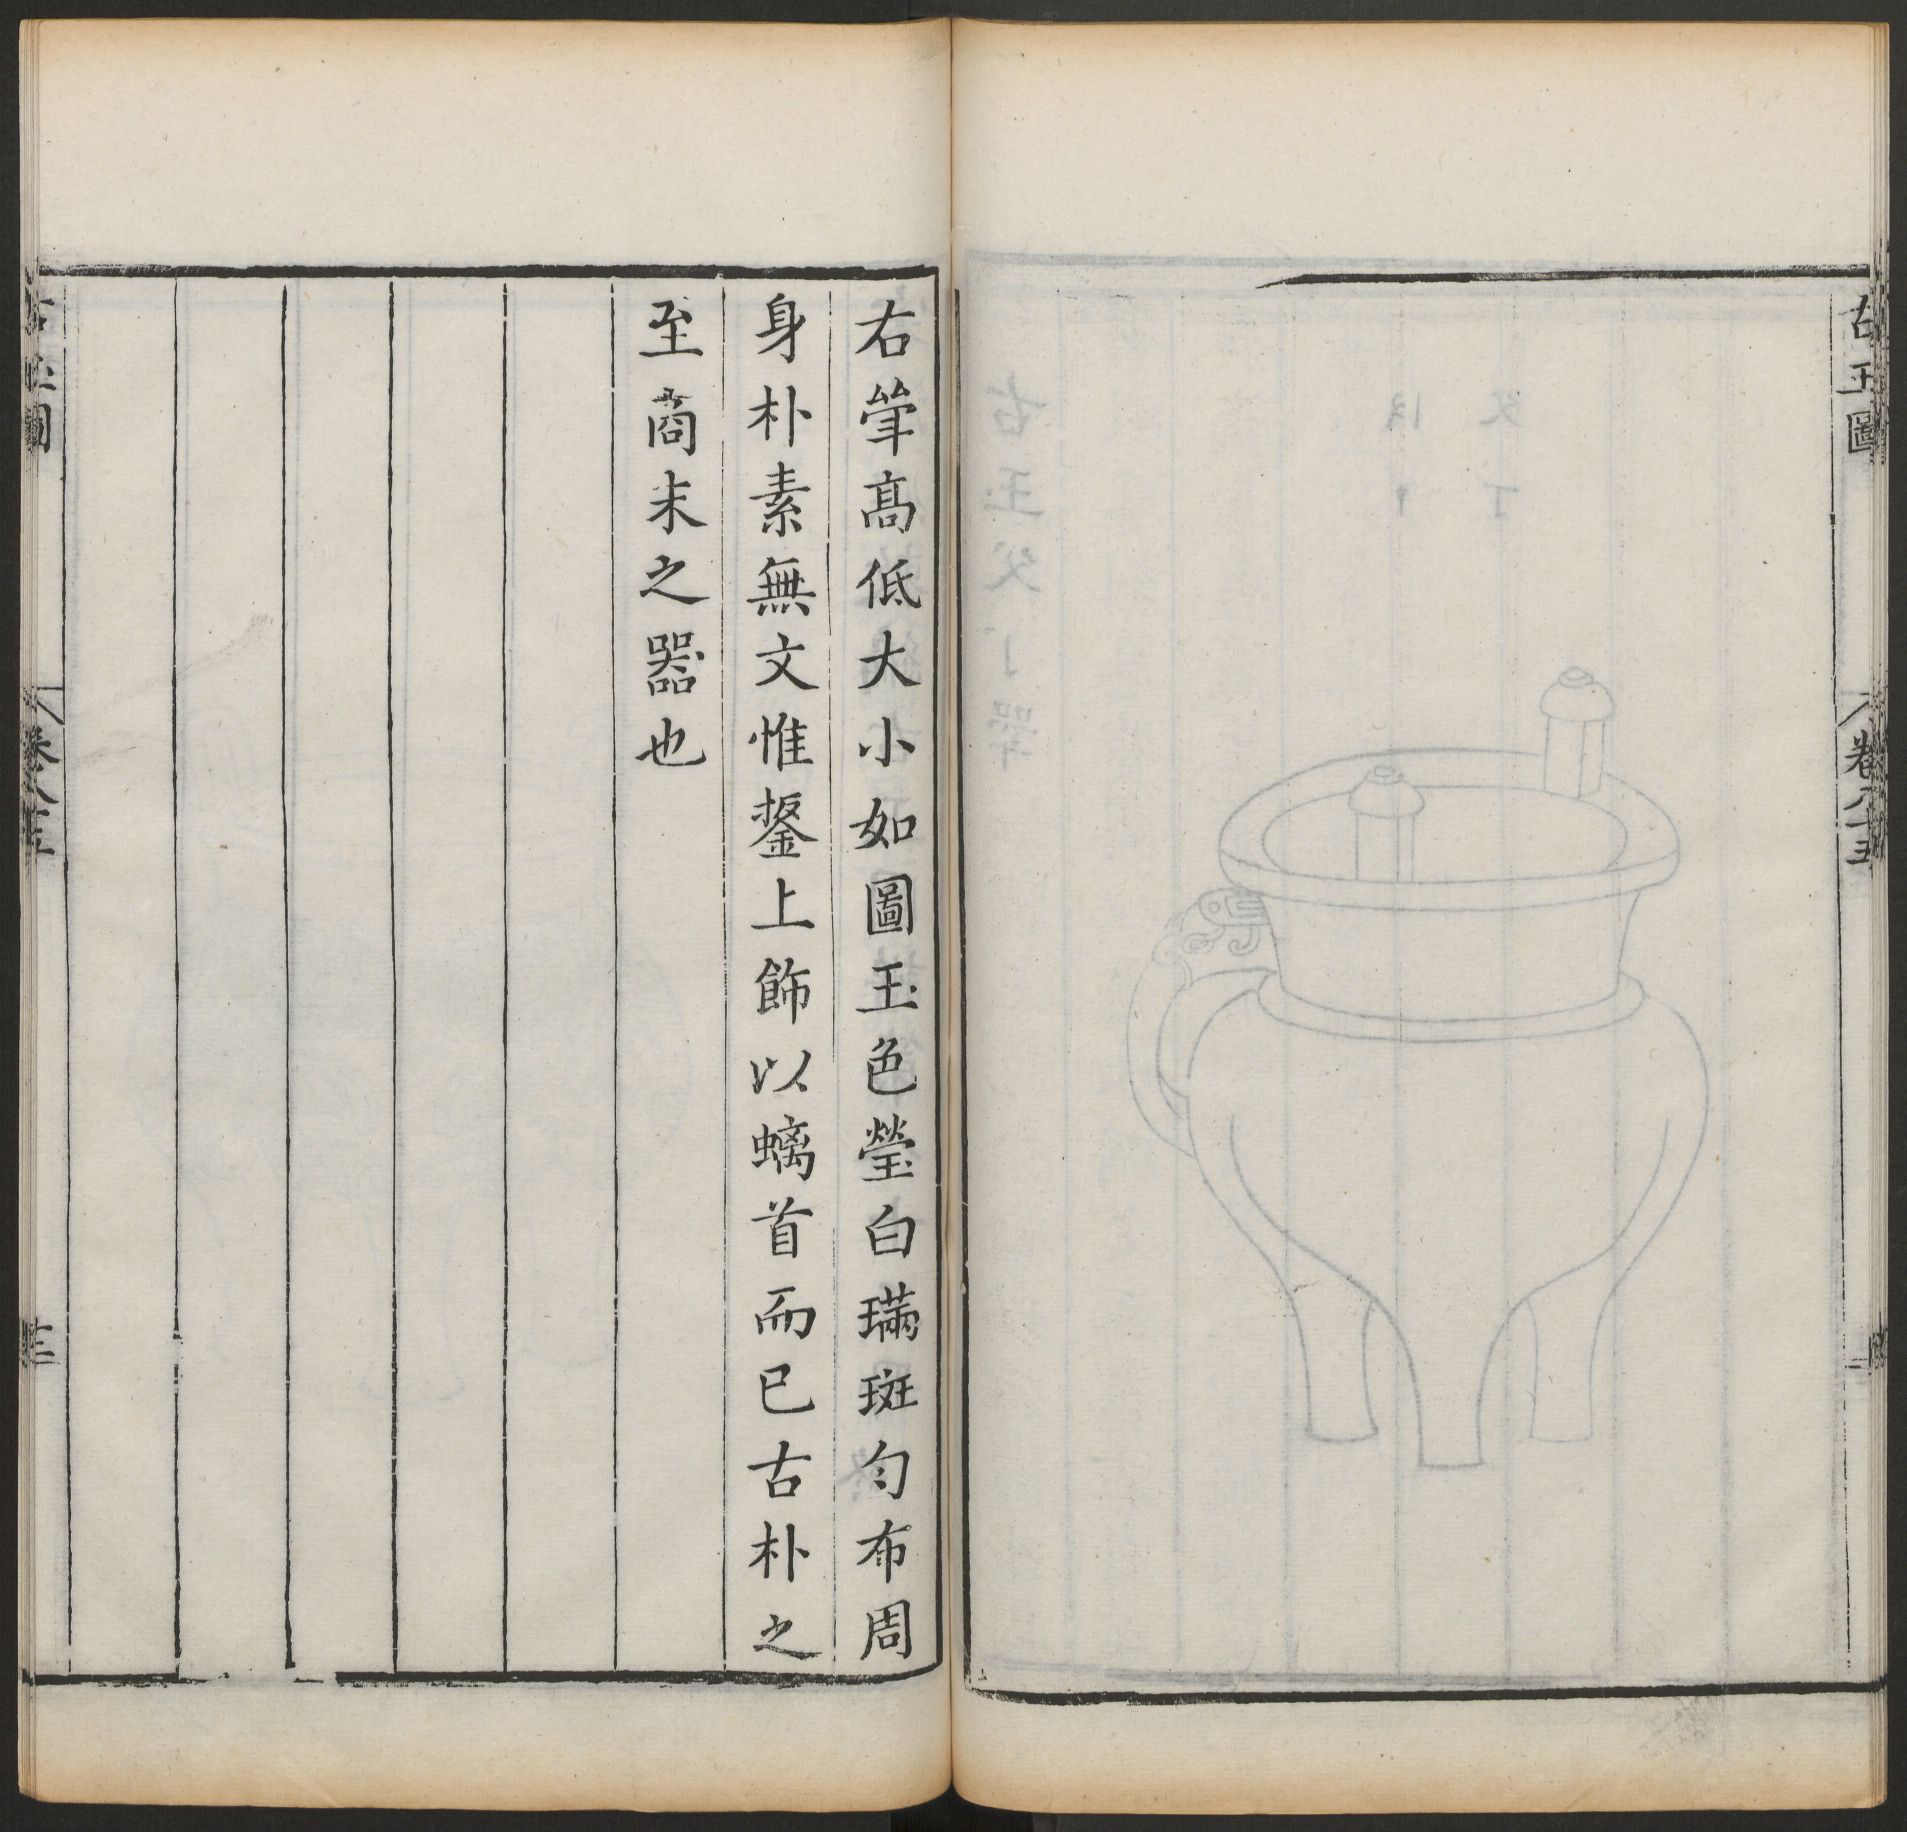 古玉圖
卷八十五
右斝高低大小如圖玉色瑩白璊斑勻布周
身朴素無文惟鋬上飾以螭首而已古朴之
至商末之器也